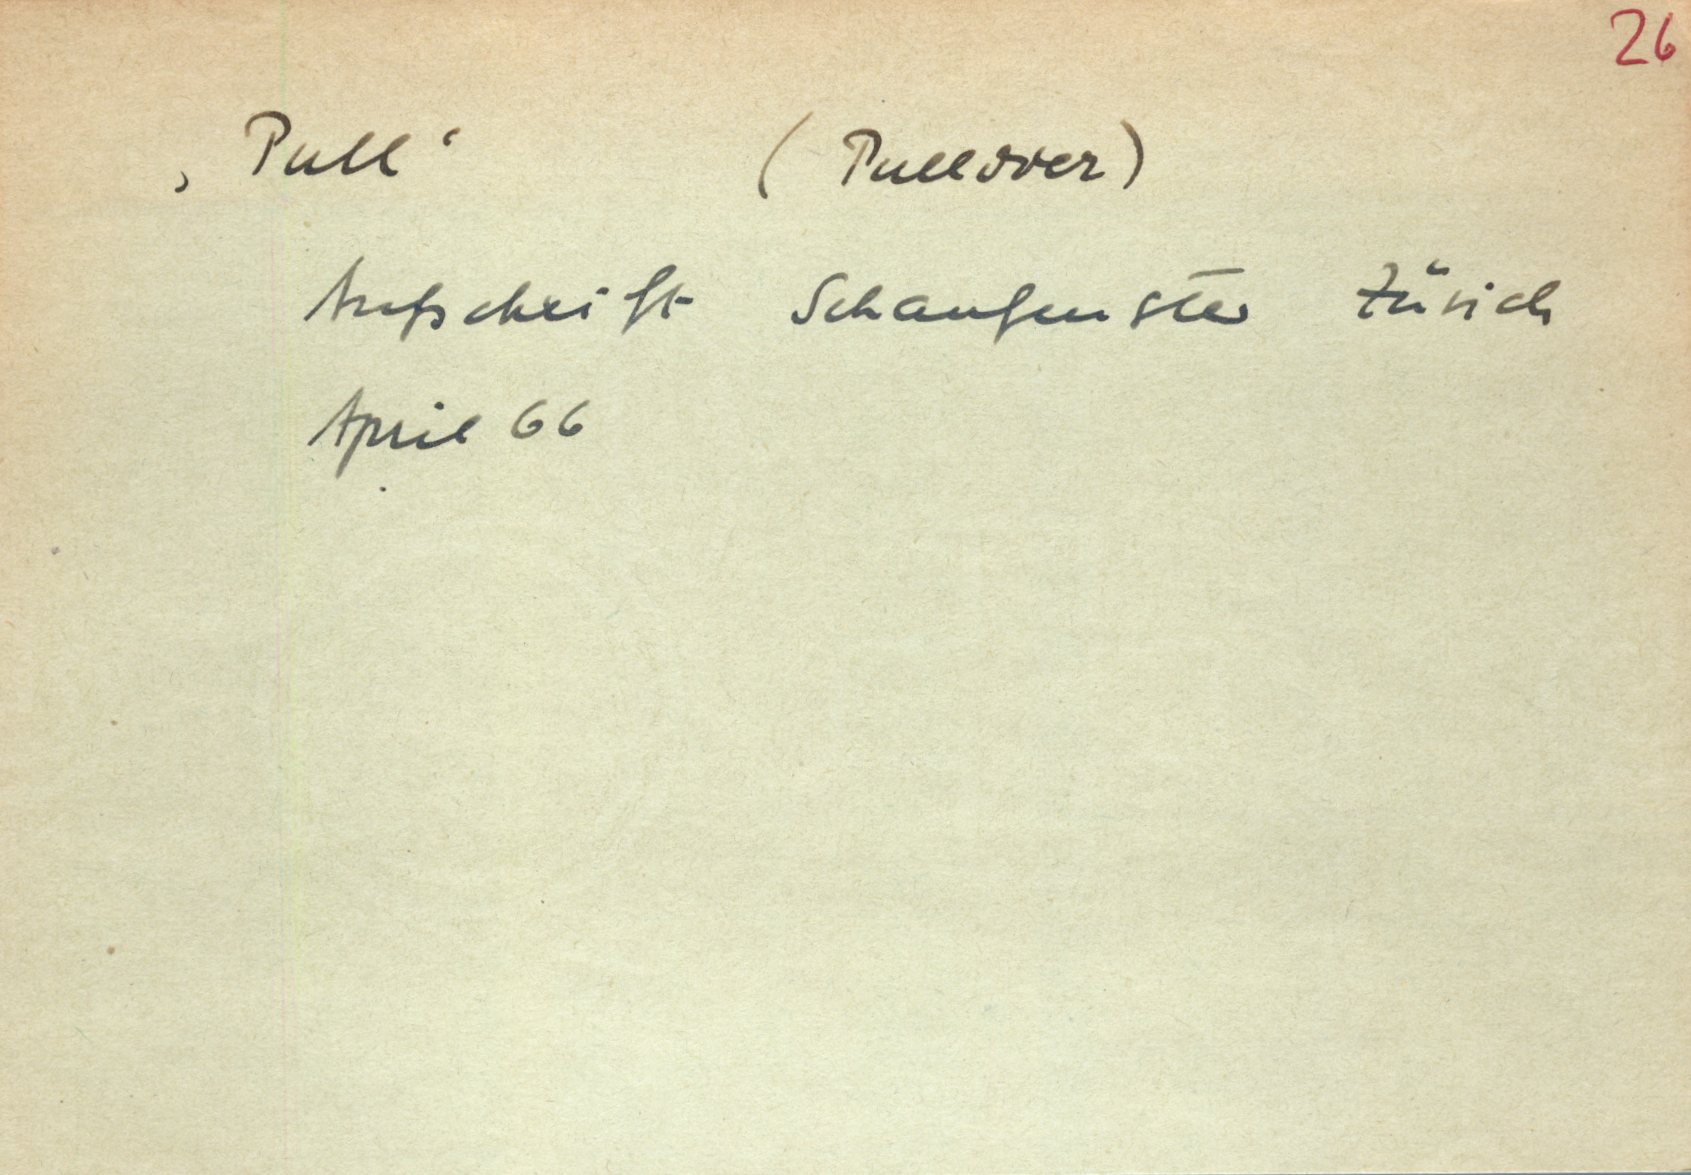 26
‚Pull‘ (Pullover)
Aufschrift Schaufenster Zürich
April 66